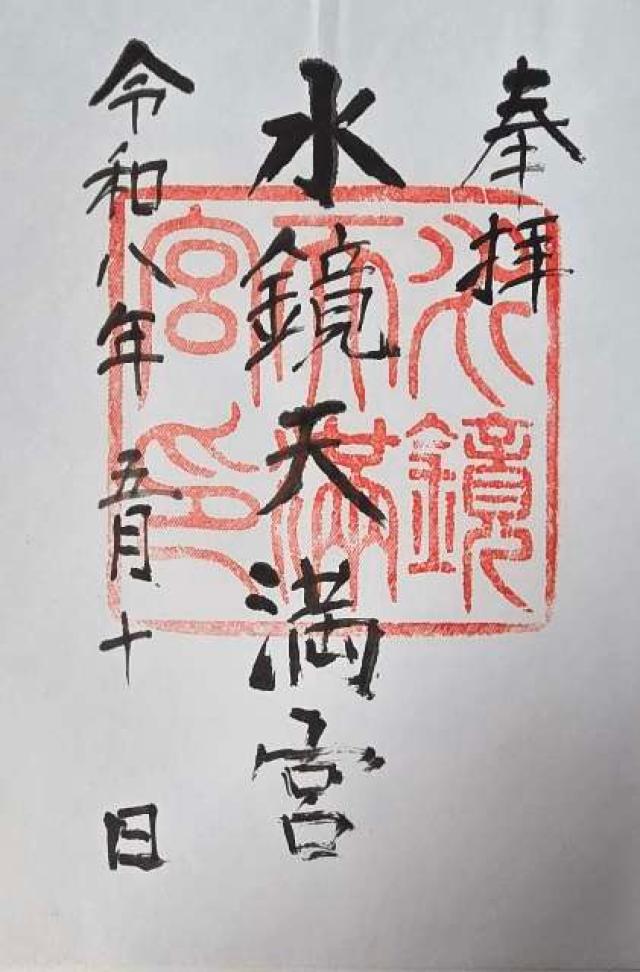 奉拝
水鏡天満宮
令和八年 五月十 日
水鏡
天満
宮印